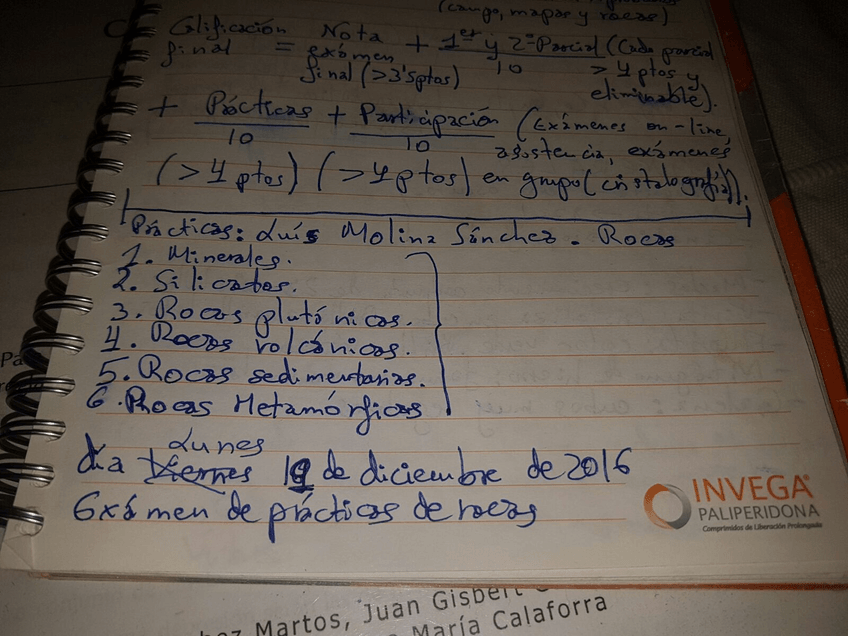 (campo, mapas y rocas)
Calificación final = Nota exámen final (>3'5ptos) + 1er y 2º Parcial / 10 (Cada parcial > 4 ptos y eliminable).
+ Prácticas / 10 + Participación / 10 (Exámenes on-line, asistencia, exámenes
(>4 ptos) (>4 ptos) en grupo (cristalografía)).
Prácticas: Luís Molina Sánchez. Rocas
1. Minerales.
2. Silicatos.
3. Rocas plutónicas.
4. Rocas volcánicas.
5. Rocas sedimentarias.
6. Rocas Metamórficas
Lunes
día Viernes 19 de diciembre de 2016
Exámen de prácticas de rocas
INVEGA®
PALIPERIDONA
Comprimidos de Liberación Prolongada
Martos, Juan Gisbert
María Calaforra